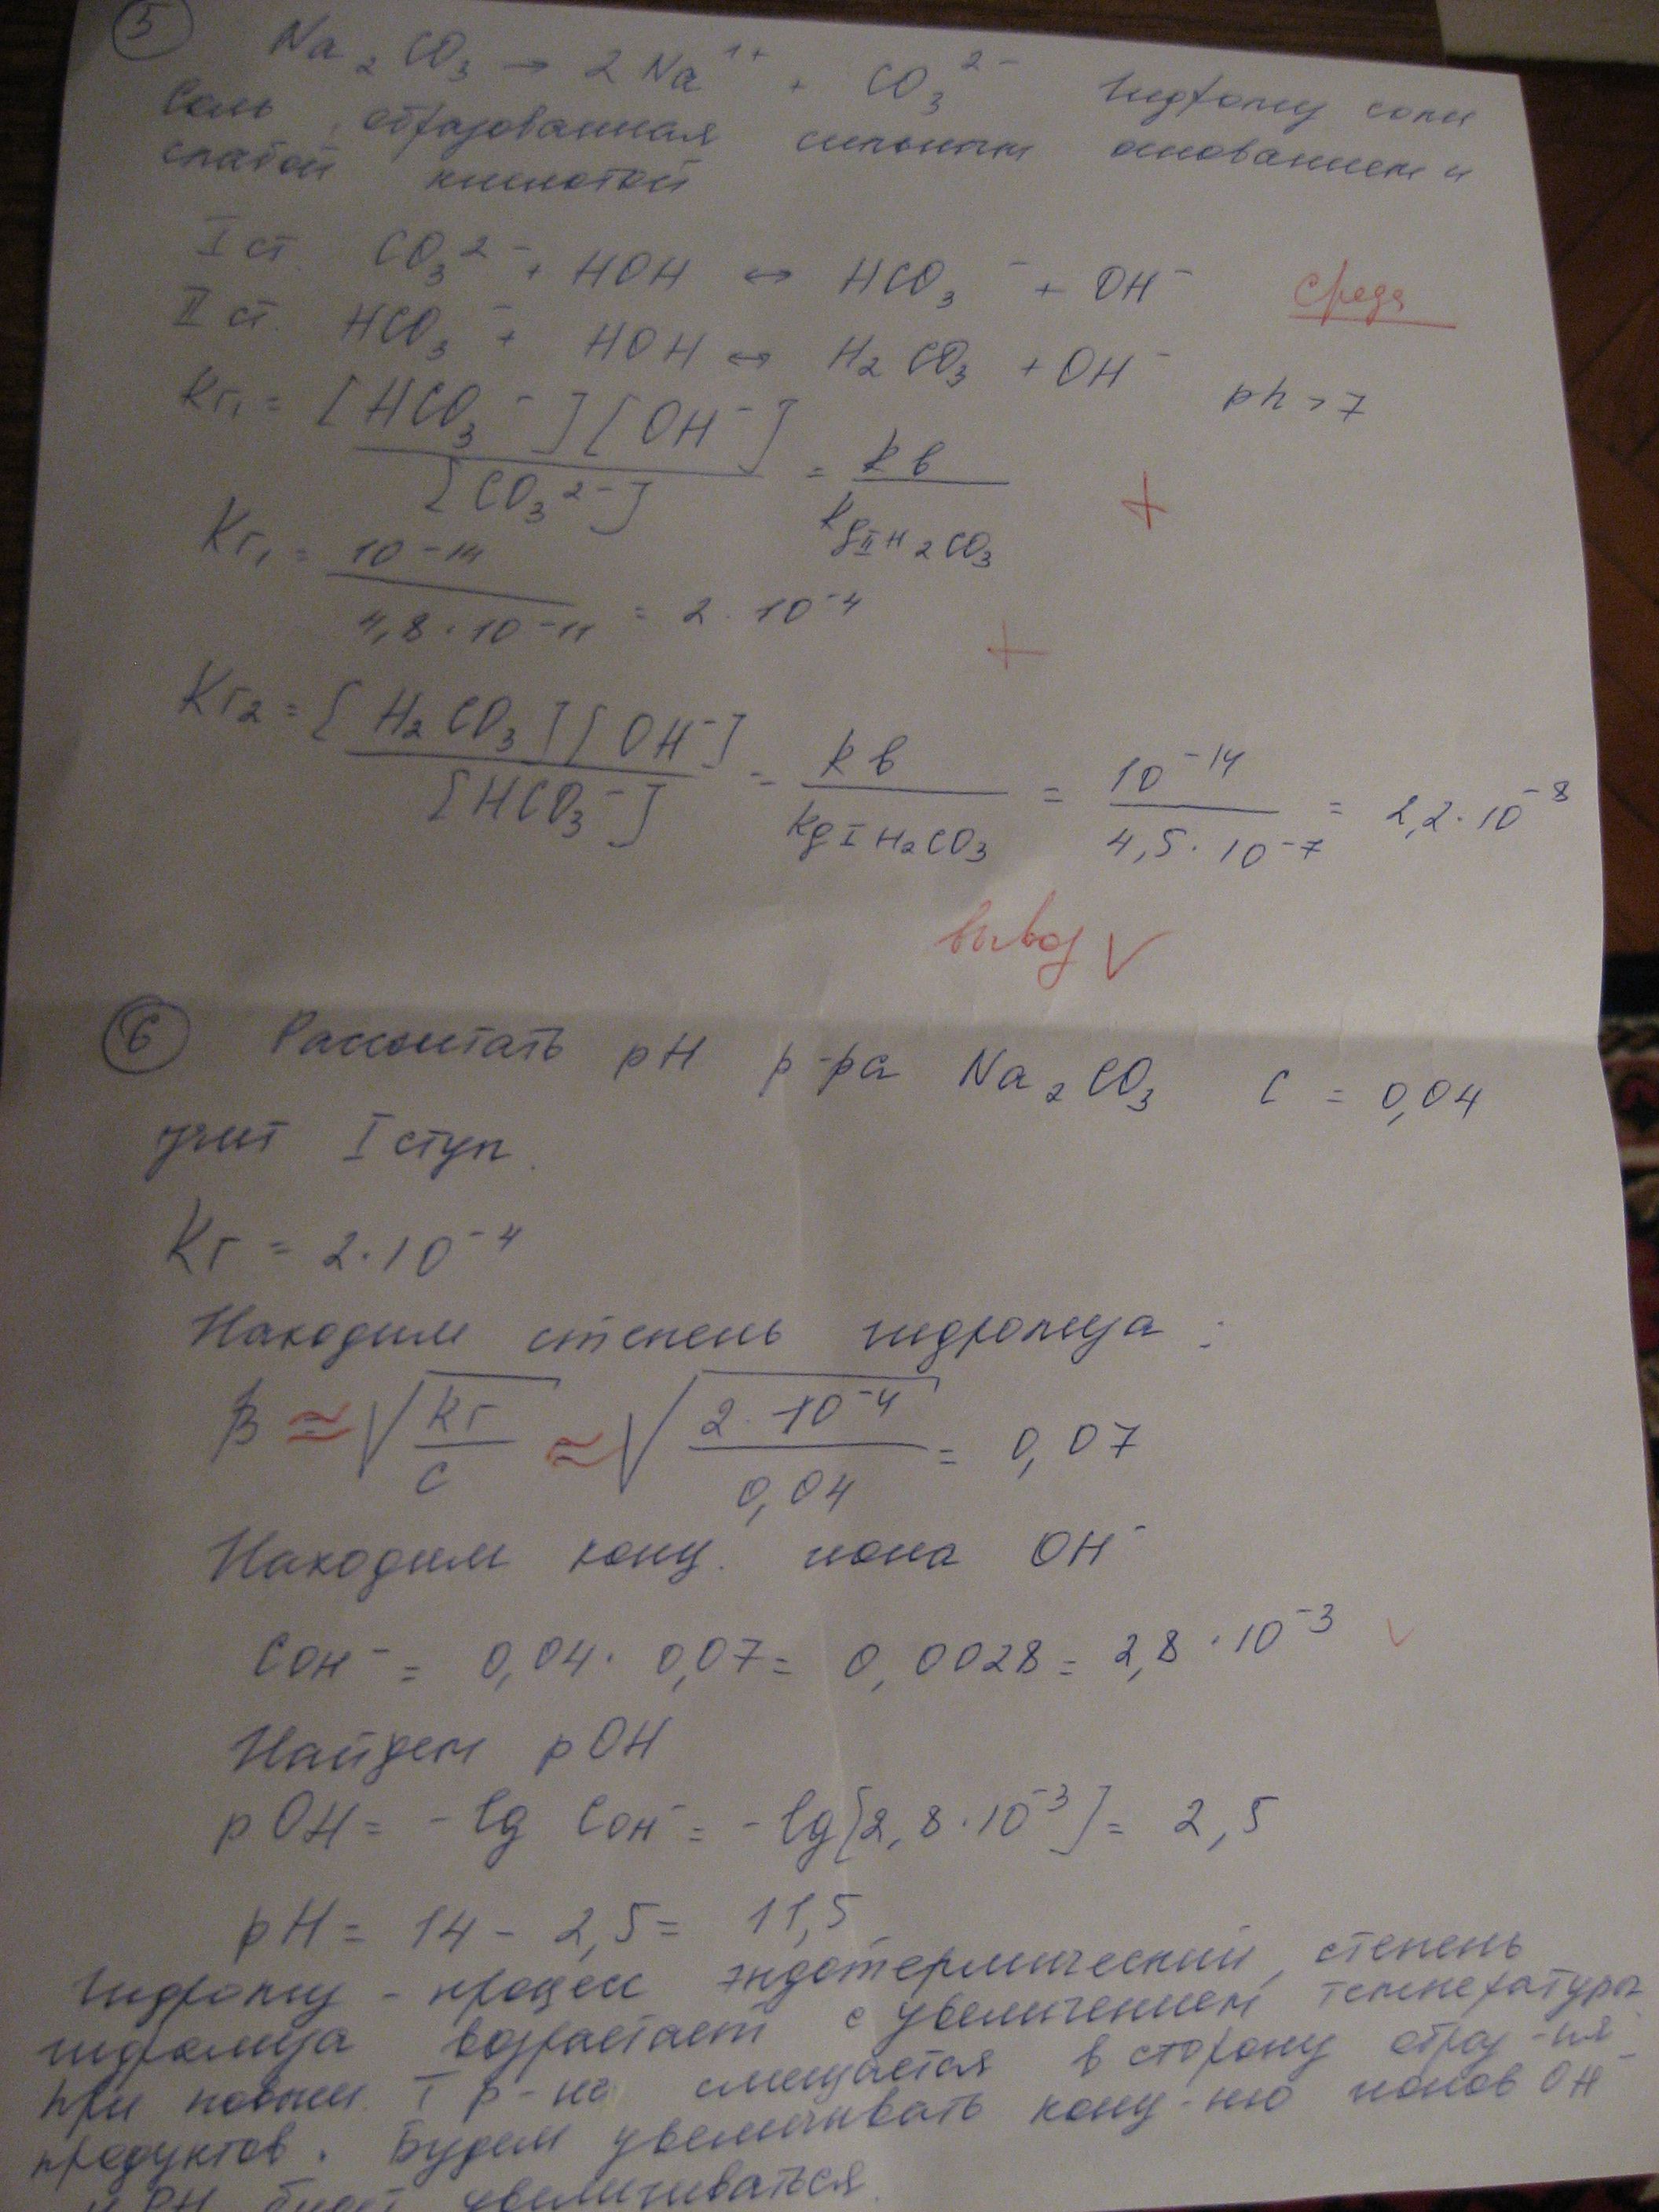 5 Na2CO3 → 2Na¹⁺ + CO3²⁻ Гидролиз соли
Соль, образованная сильным основанием и
слабой кислотой
I ст. CO3²⁻ + HOH ↔ HCO3⁻ + OH⁻ среда
II ст. HCO3⁻ + HOH ↔ H2CO3 + OH⁻
ph > 7
Кг1 = [HCO3⁻][OH⁻] / [CO3²⁻] = kв / kgII H2CO3 +
Кг1 = 10⁻¹⁴ / 4,8·10⁻¹¹ = 2·10⁻⁴ +
Кг2 = [H2CO3][OH⁻] / [HCO3⁻] = kв / kgI H2CO3 = 10⁻¹⁴ / 4,5·10⁻⁷ = 2,2·10⁻⁸
вывод V
6 Рассчитать pH р-ра Na2CO3 C = 0,04
учит I ступ.
Кг = 2·10⁻⁴
Находим степень гидролиза:
β ≃ √(kг / c) ≃ √(2·10⁻⁴ / 0,04) = 0,07
Находим конц. иона OH⁻
COH⁻ = 0,04·0,07 = 0,0028 = 2,8·10⁻³ V
Найдем pOH
pOH = -lg COH⁻ = -lg[2,8·10⁻³] = 2,5
pH = 14 - 2,5 = 11,5
Гидролиз - процесс эндотермический, степень
гидролиза возрастает с увеличением температуры
При повыш. T р-ие смещается в сторону образ-ия
продуктов. Будем увеличивать конц-ию ионов OH⁻
и PH будет увеличиваться.